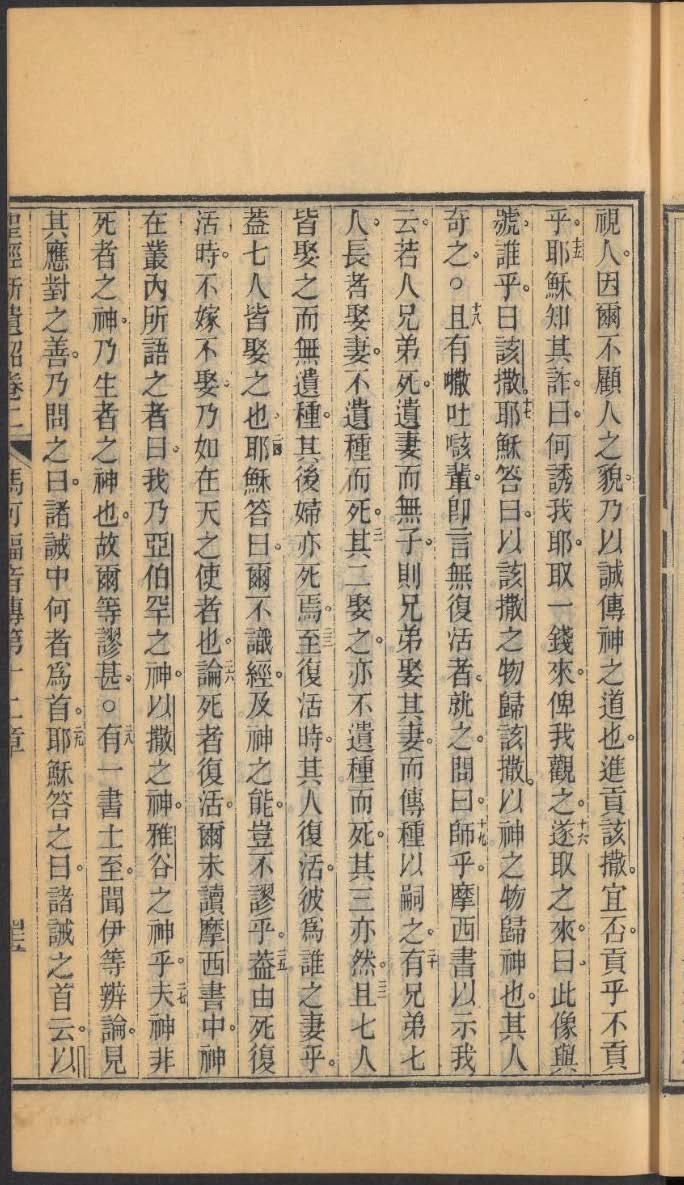 視人因爾不顧人之貌乃以誠傳神之道也進貢該撒宜否貢乎不貢
乎十五耶穌知其詐曰何誘我耶取一錢來俾我觀之十六遂取之來曰此像與
號誰乎曰該撒十七耶穌答曰以該撒之物歸該撒以神之物歸神也其人
奇之〇十八且有㘔吐𡁲輩卽言無復活者就之問曰十九師乎摩西書以示我
云若人兄弟死遺妻而無子則兄弟娶其妻而傳種以嗣之二十有兄弟七
人長者娶妻不遺種而死二一其二娶之亦不遺種而死其三亦然二二且七人
皆娶之而無遺種其後婦亦死焉二三至復活時其人復活彼爲誰之妻乎
葢七人皆娶之也二四耶穌答曰爾不識經及神之能豈不謬乎二五葢由死復
活時不嫁不娶乃如在天之使者也二六論死者復活爾未讀摩西書中神
在叢內所語之者曰我乃亞伯罕之神以撒之神雅谷之神乎二七夫神非
死者之神乃生者之神也故爾等謬甚〇二八有一書士至聞伊等辨論見
其應對之善乃問之曰諸誡中何者爲首二九耶穌答之曰諸誡之首云以
聖經新遺詔卷二 馬可福音傳第十二章